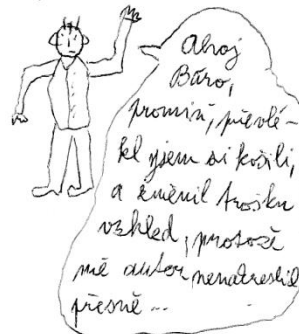 Ahoj
Báro,
promiň, převlé-
kl jsem si košili,
a změnil trošku
vzhled, protože
mě autor nenakreslil
přesně...